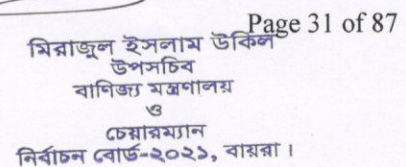 Page 31 of 87
মিরাজুল ইসলাম উকিল
উপসচিব
বাণিজ্য মন্ত্রণালয়
ও
চেয়ারম্যান
নির্বাচন বোর্ড-২০২১, বায়রা ।